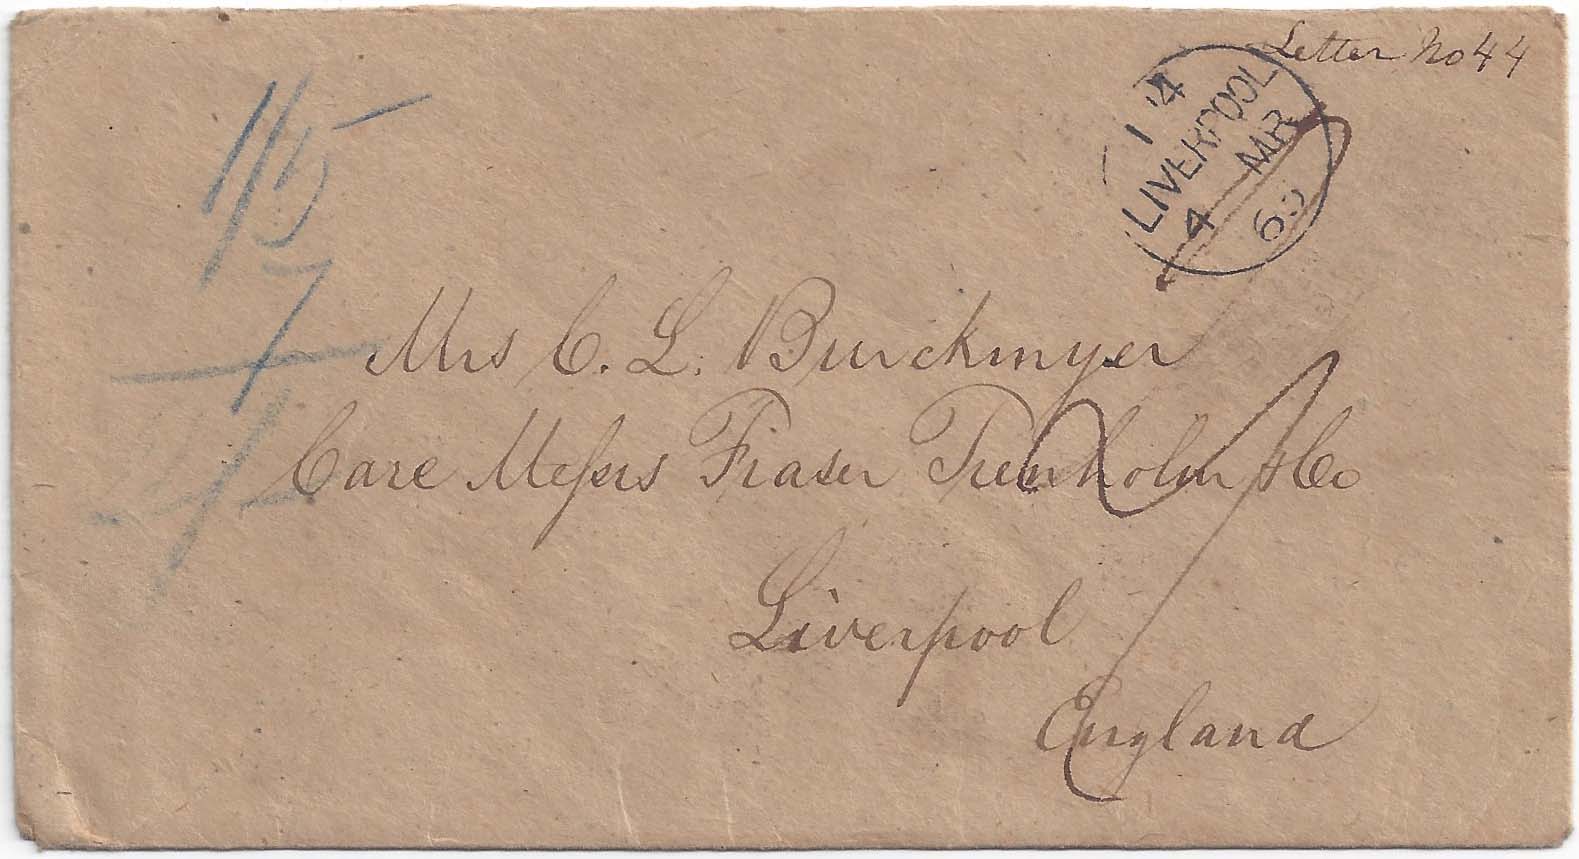 Letter No 44
1 4
LIVERPOOL
4 MR
65
1/5
7
Mrs C. L. Burckmyer
Care Messrs Fraser Trenholm & Co
Liverpool
England